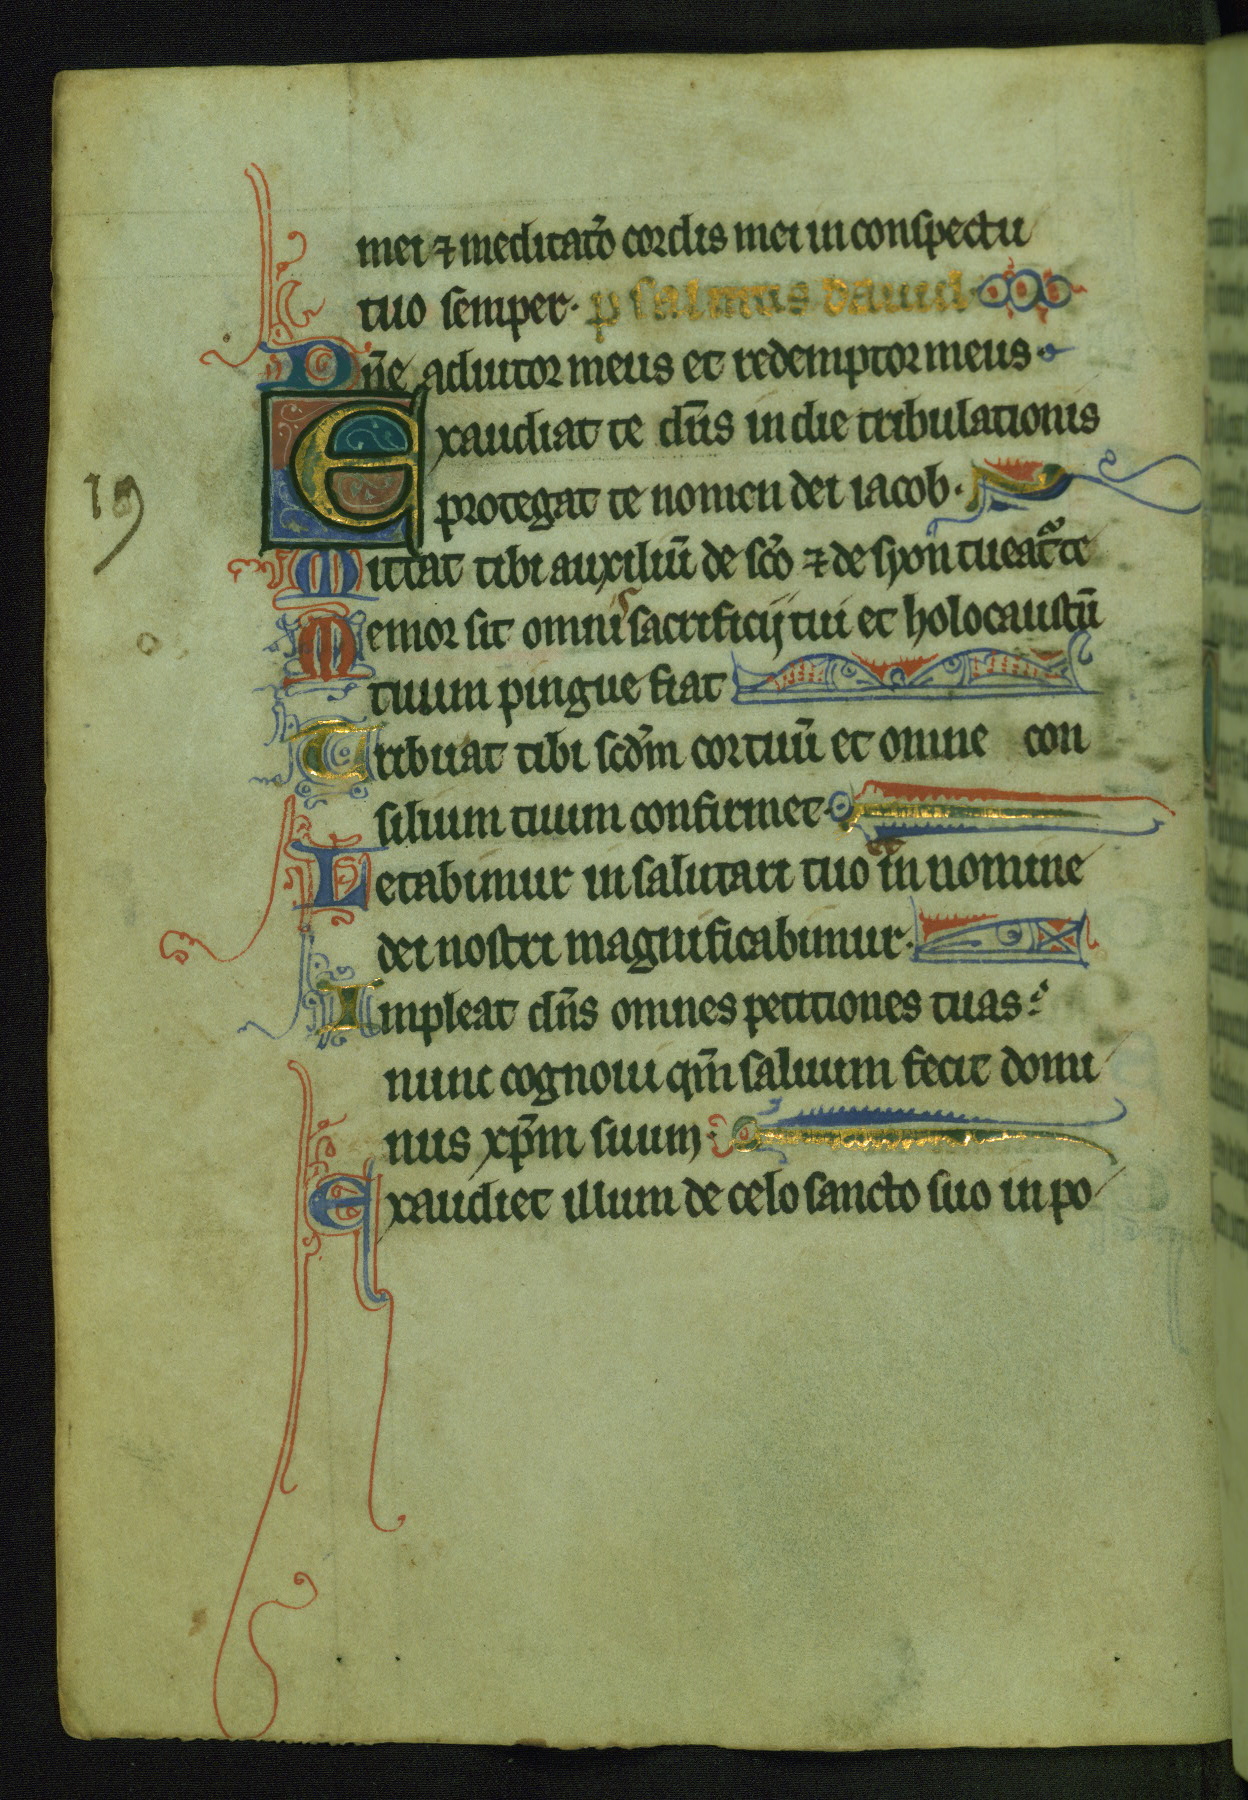 mei ⁊ meditatō cordis mei in conspectu
tuo semper. psalmus dauid
Dn̄e adiutor meus et redemptor meus.
Exaudiat te dn̄s in die tribulationis
19
protegat te nomen dei iacob.
Mittat tibi auxiliū de sc̄o ⁊ de syon tueat᷑ te
Memor sit omnis sacrificij tui et holocaustū
tuum pingue fiat
Tribuat tibi scd̄m cor tuū et omne con
silium tuum confirmet.
Letabimur in salutari tuo in nomine
dei nostri magnificabimur.
Impleat dn̄s omnes petitiones tuas:
nunc cognoui qm̄ saluum fecit domi
nus xp̄m suum:
Exaudiet illum de celo sancto suo in po